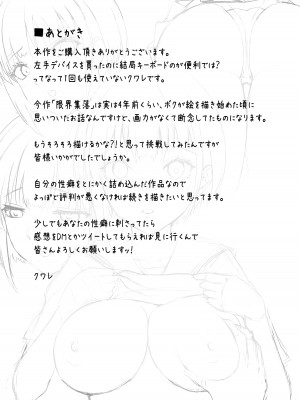 ■あとがき
本作をご購入頂きありがとうございます。
左手デバイスを買ったのに結局キーボードのが便利では？
ってなって1回も使えていないクワレです。
今作「限界集落」は実は4年前くらい、ボクが絵を描き始めた頃に
思いついたお話なんですけど、画力がなくて断念してたものになります。
もうそろそろ描けるかな？！と思って挑戦してみたんですが
皆様いかがでしたでしょうか。
自分の性癖をとにかく詰め込んだ作品なので
よっぽど評判が悪くなければ続きを描きたいと思ってます。
少しでもあなたの性癖に刺さってたら
感想をDMとかツイートしてもらえれば見に行くんで
皆さんよろしくお願いしますッ！
クワレ